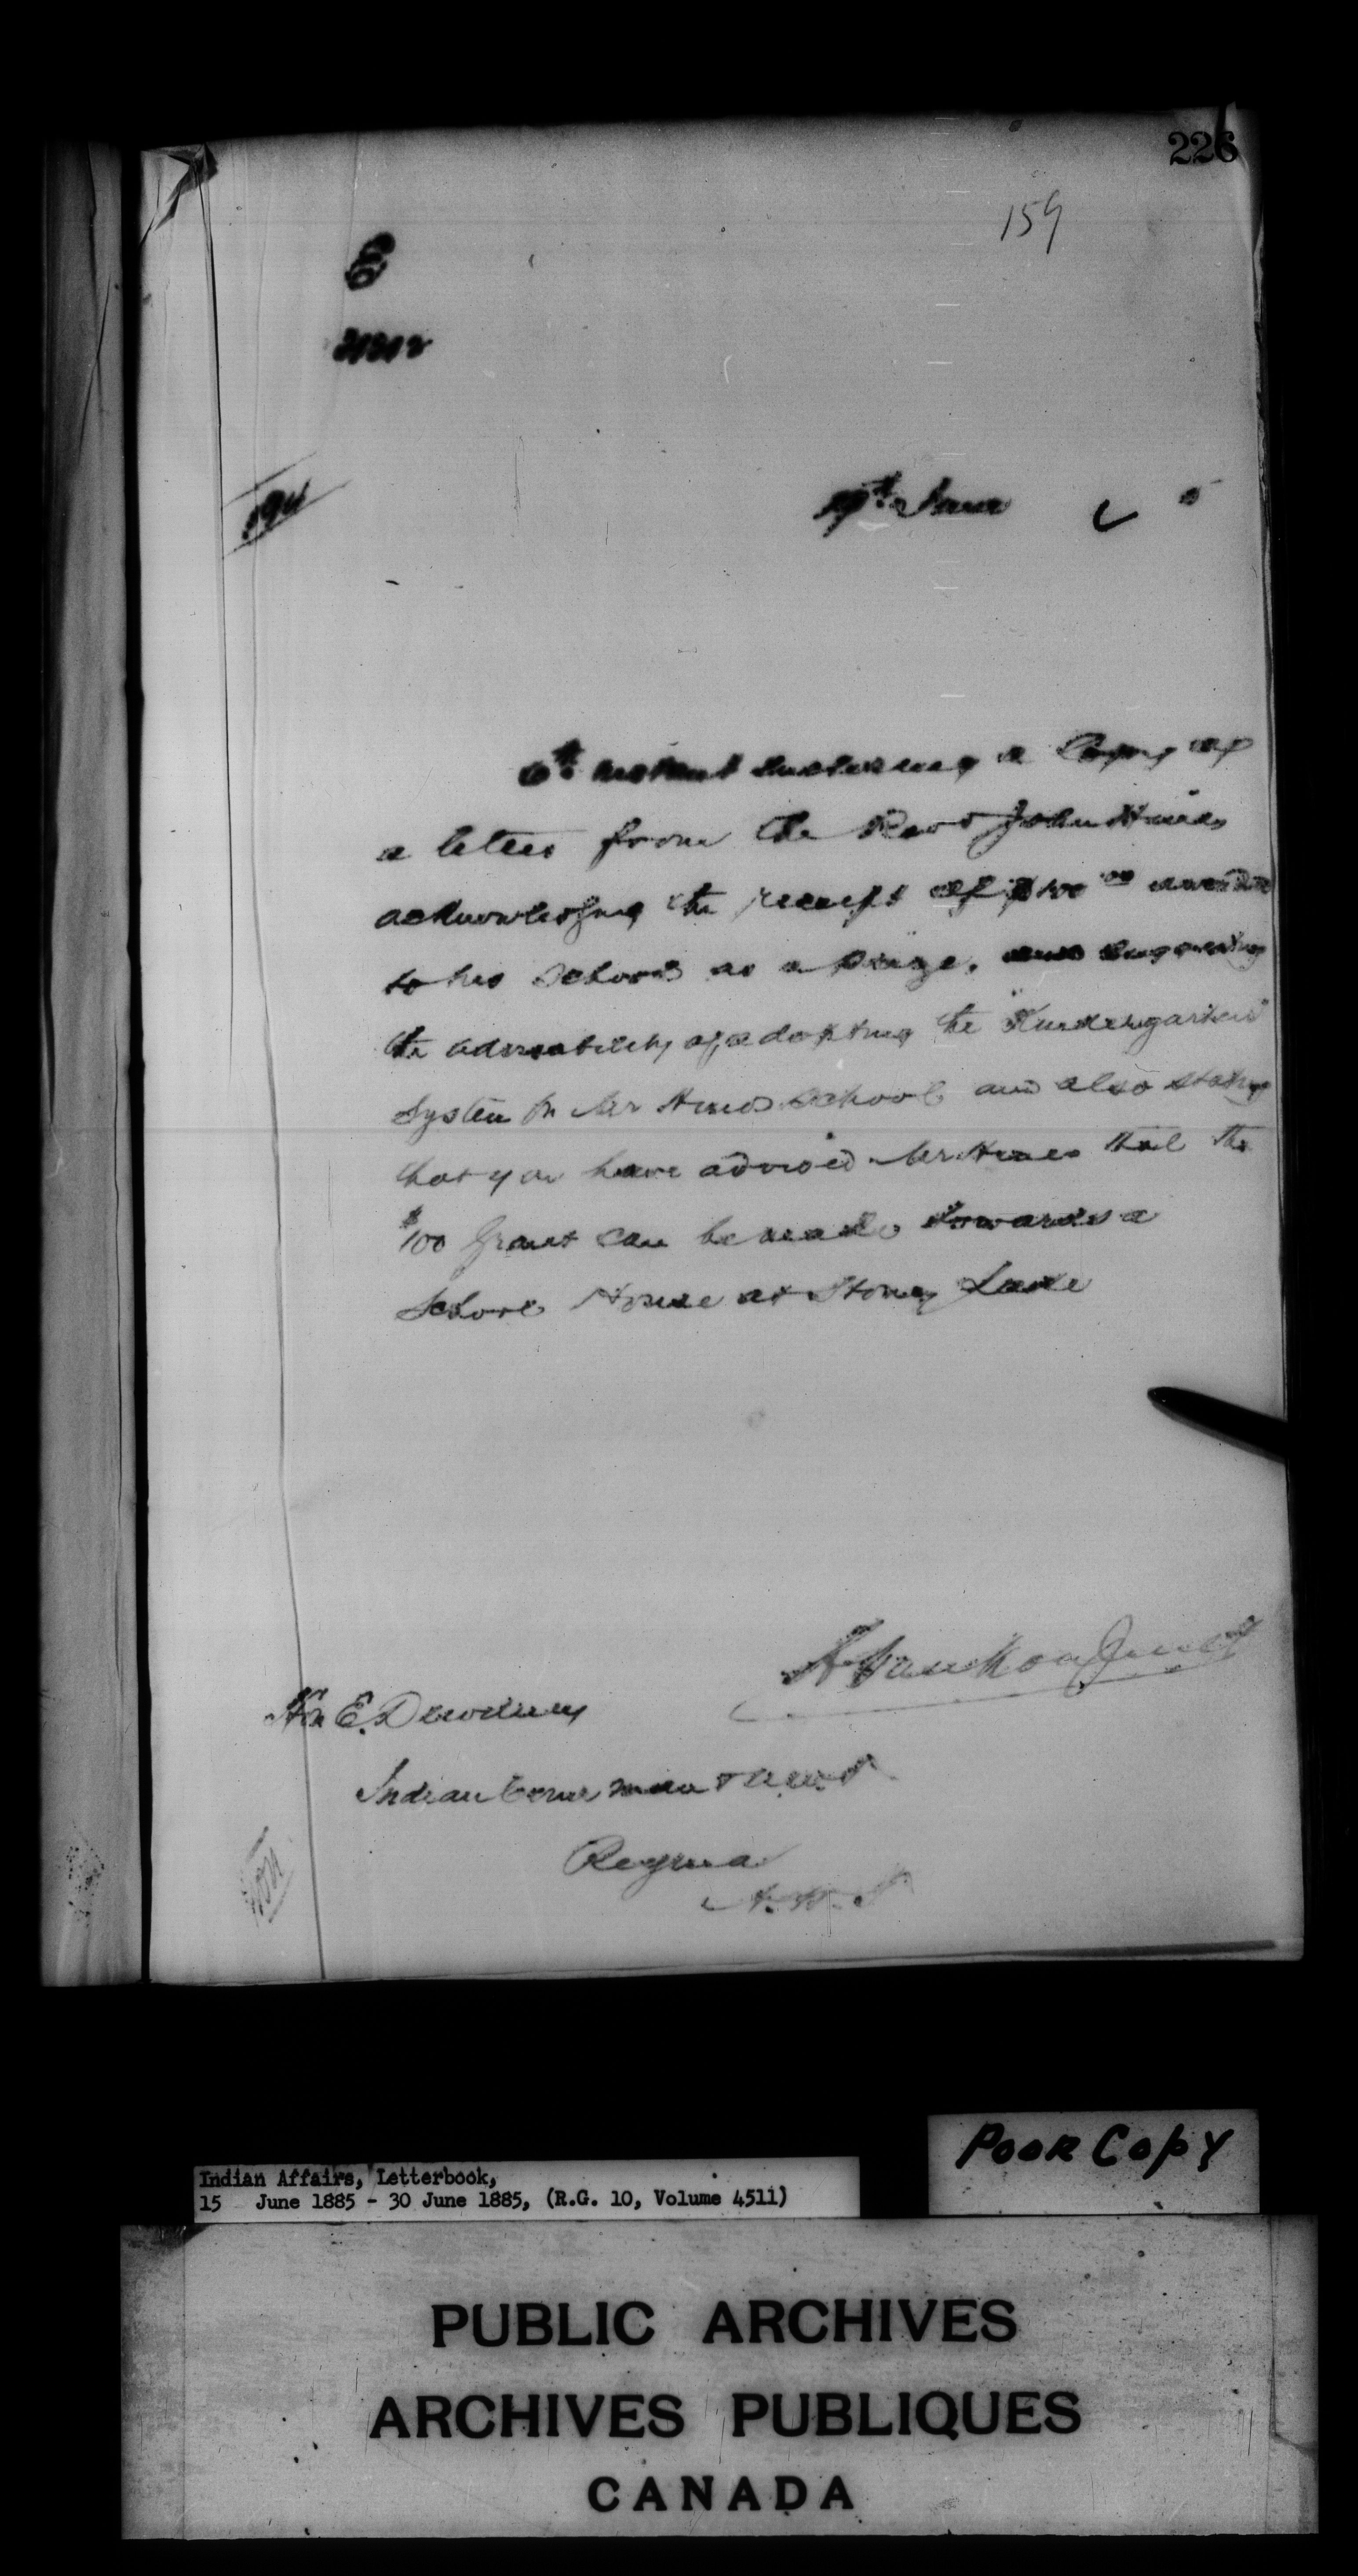 226
159
19th June 5
6th instant enclosing a Copy of
a letter from the Revd John Hines
acknowledging the receipt of $100 00 awarded
to his School as a Prize, and suggesting
the advisability of adopting the "Kindergarten"
System in Mr Hines School and also stating
that you have advised Mr Hines that the
$100 Grant can be made towards a
School House at Stoney Lake
L. Vankoughnet
Hon E. Dewdney
Indian Commr
Regina
N.W.T
Poor Copy
Indian Affairs, Letterbook,
15 June 1885 - 30 June 1885, (R.G. 10, Volume 4511)
PUBLIC ARCHIVES
ARCHIVES PUBLIQUES
CANADA